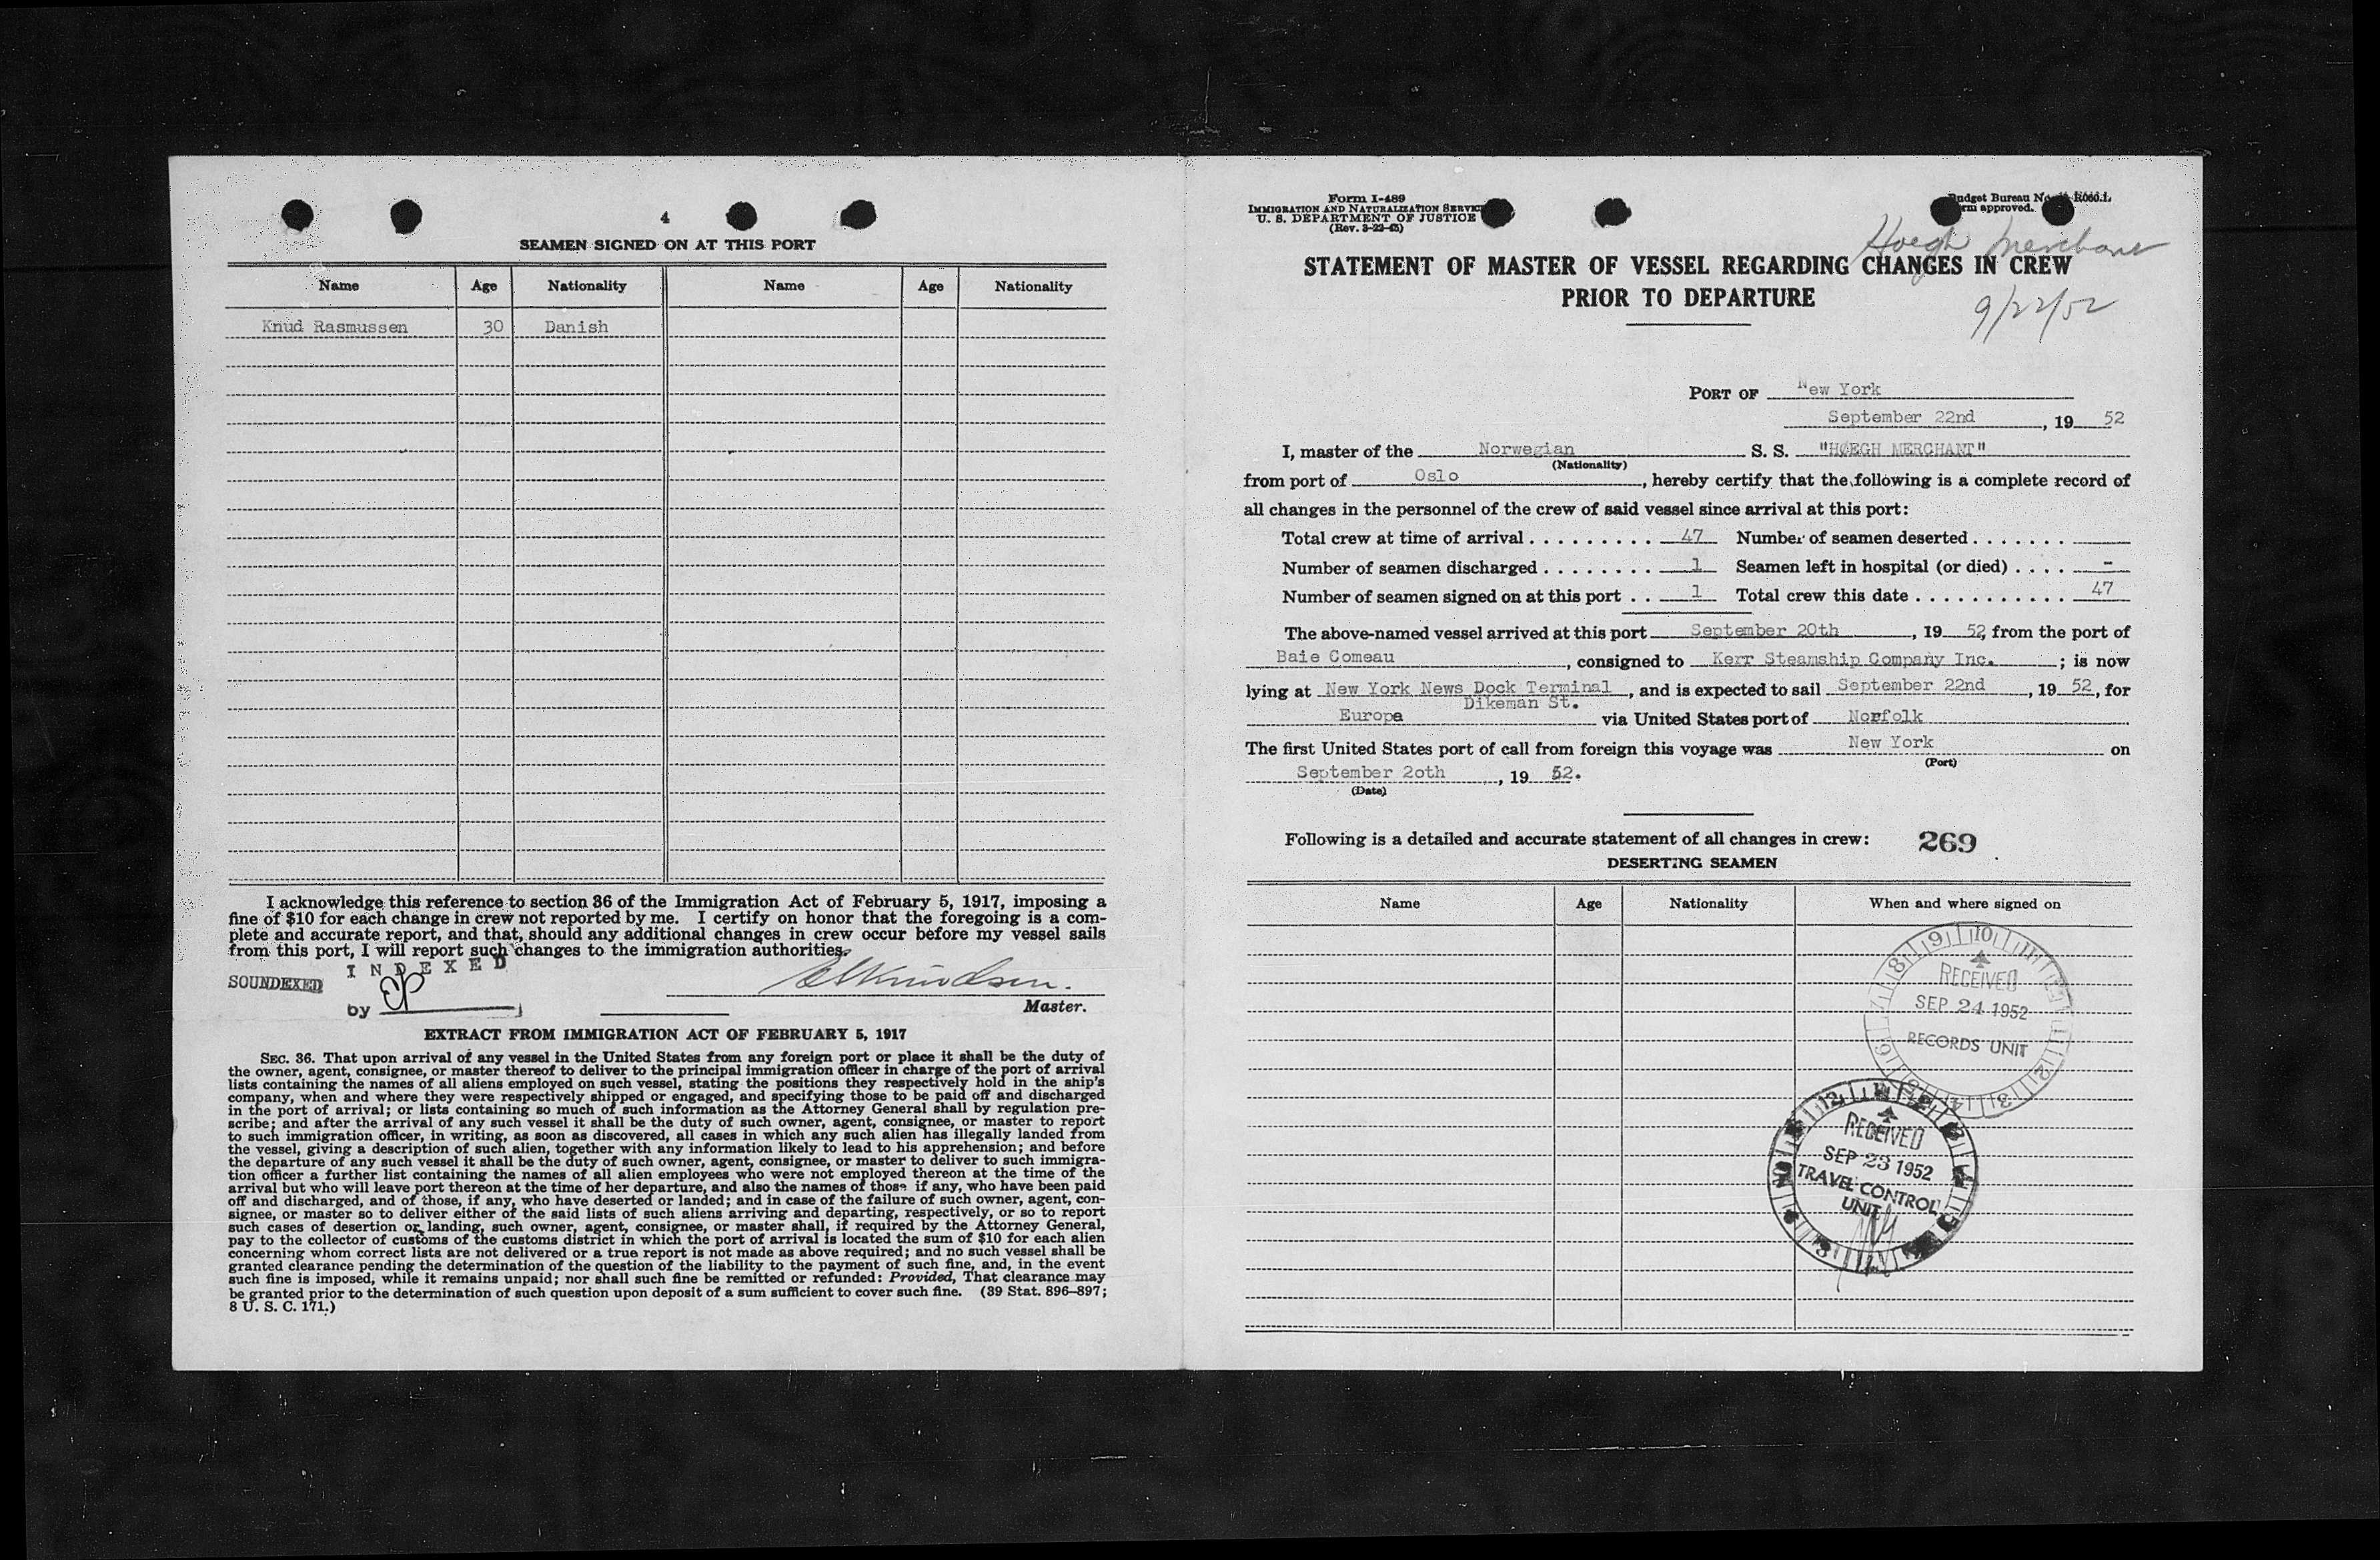 4
SEAMEN SIGNED ON AT THIS PORT
Name Age Nationality Name Age Nationality
Knud Rasmussen 30 Danish
I acknowledge this reference to section 36 of the Immigration Act of February 5, 1917, imposing a
fine of $10 for each change in crew not reported by me. I certify on honor that the foregoing is a com-
plete and accurate report, and that, should any additional changes in crew occur before my vessel sails
from this port, I will report such changes to the immigration authorities.
INDEXED
SOUNDEXED
by
Master.
EXTRACT FROM IMMIGRATION ACT OF FEBRUARY 5, 1917
SEC. 36. That upon arrival of any vessel in the United States from any foreign port or place it shall be the duty of
the owner, agent, consignee, or master thereof to deliver to the principal immigration officer in charge of the port of arrival
lists containing the names of all aliens employed on such vessel, stating the positions they respectively hold in the ship's
company, when and where they were respectively shipped or engaged, and specifying those to be paid off and discharged
in the port of arrival; or lists containing so much of such information as the Attorney General shall by regulation pre-
scribe; and after the arrival of any such vessel it shall be the duty of such owner, agent, consignee, or master to report
to such immigration officer, in writing, as soon as discovered, all cases in which any such alien has illegally landed from
the vessel, giving a description of such alien, together with any information likely to lead to his apprehension; and before
the departure of any such vessel it shall be the duty of such owner, agent, consignee, or master to deliver to such immigra-
tion officer a further list containing the names of all alien employees who were not employed thereon at the time of the
arrival but who will leave port thereon at the time of her departure, and also the names of those if any, who have been paid
off and discharged, and of those, if any, who have deserted or landed; and in case of the failure of such owner, agent, con-
signee, or master so to deliver either of the said lists of such aliens arriving and departing, respectively, or so to report
such cases of desertion or landing, such owner, agent, consignee, or master shall, if required by the Attorney General,
pay to the collector of customs of the customs district in which the port of arrival is located the sum of $10 for each alien
concerning whom correct lists are not delivered or a true report is not made as above required; and no such vessel shall be
granted clearance pending the determination of the question of the liability to the payment of such fine, and, in the event
such fine is imposed, while it remains unpaid; nor shall such fine be remitted or refunded: Provided, That clearance may
be granted prior to the determination of such question upon deposit of a sum sufficient to cover such fine. (39 Stat. 896-897;
8 U. S. C. 171.)
Form I-489
IMMIGRATION AND NATURALIZATION SERVICE
U. S. DEPARTMENT OF JUSTICE
(Rev. 3-22-45)
Budget Bureau No.
Form approved.
Hoegh Merchant
STATEMENT OF MASTER OF VESSEL REGARDING CHANGES IN CREW
PRIOR TO DEPARTURE
9/22/52
PORT OF New York
September 22nd, 19 52
I, master of the Norwegian S. S. "HØEGH MERCHANT"
(Nationality)
from port of Oslo, hereby certify that the following is a complete record of
all changes in the personnel of the crew of said vessel since arrival at this port:
Total crew at time of arrival . . . . . . . . . 47 Number of seamen deserted . . . . . . .
Number of seamen discharged . . . . . . . . 1 Seamen left in hospital (or died) . . . . -
Number of seamen signed on at this port . . 1 Total crew this date . . . . . . . . . . . 47
The above-named vessel arrived at this port September 20th, 19 52, from the port of
Baie Comeau, consigned to Kerr Steamship Company Inc. ; is now
lying at New York News Dock Terminal, and is expected to sail September 22nd, 19 52, for
Dikeman St.
Europe via United States port of Norfolk
The first United States port of call from foreign this voyage was New York on
(Port)
September 2oth, 19 52.
(Date)
Following is a detailed and accurate statement of all changes in crew: 269
DESERTING SEAMEN
Name Age Nationality When and where signed on
RECEIVED
SEP 24 1952
RECORDS UNIT
RECEIVED
SEP 23 1952
TRAVEL CONTROL
UNIT